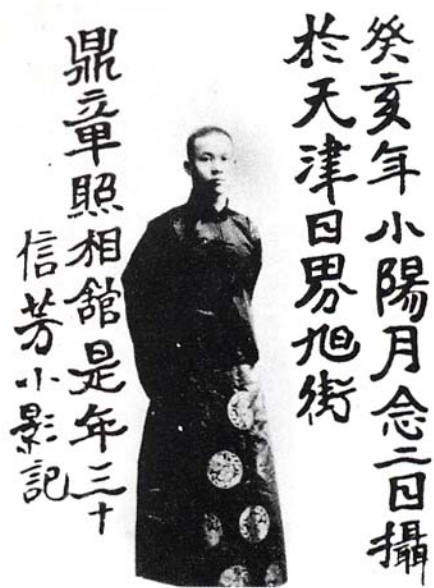 癸亥年小陽月念二日攝
於天津日界旭街
鼎章照相舘是年三十
信芳小影記